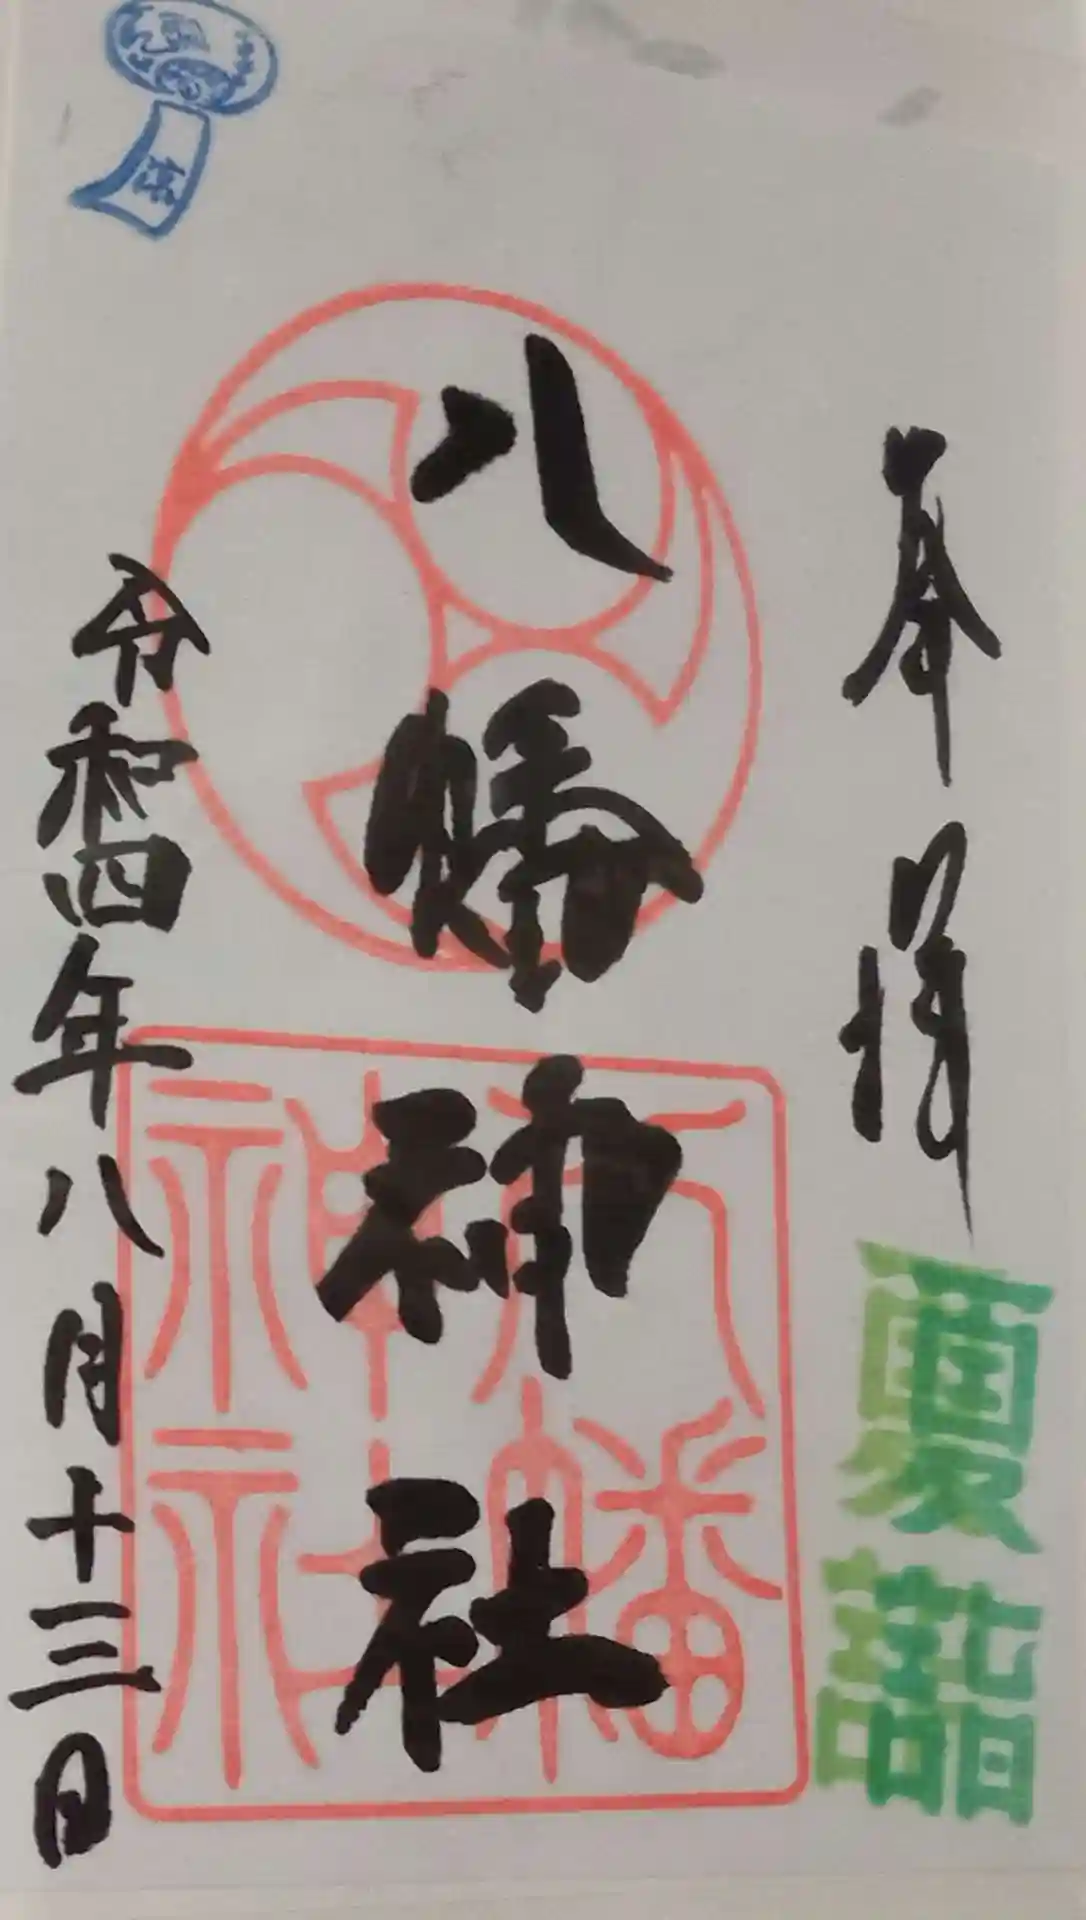 奉拝
夏詣
八幡神社
八幡神社
令和四年八月十三日
涼